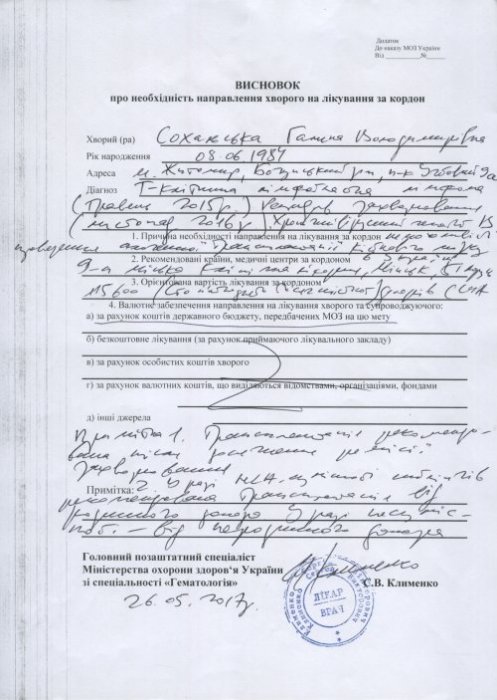 Додаток
До наказу МОЗ України
Від ____________№______
ВИСНОВОК
про необхідність направлення хворого на лікування за кордон
Хворий (ра) Сохацька Галина Володимирівна
Рік народження 08.06 1987
Адреса м. Житомир,
Діагноз Т-клітинна лімфобластна лімфома
(травень 2015р.) Рецидив захворювання
(листопад 2016р.) Хронічний вірусний гепатит В
1. Причина необхідності направлення на лікування за кордон неможливість
проведення алогенної трансплантації кісткового мозку
2. Рекомендовані країни, медичні центри за кордоном в Україні
9-а міська клінічна лікарня, Мінськ, Білорусь
3. Орієнтована вартість лікування за кордоном
115 600 (Сто доларів США
4. Валютне забезпечення направлення на лікування хворого та супроводжуючого:
а) за рахунок коштів державного бюджету, передбачених МОЗ на цю мету
б) безкоштовне лікування (за рахунок приймаючого лікувального закладу)
в) за рахунок особистих коштів хворого
г) за рахунок валютних коштів, що виділяються відомствами, організаціями, фондами
д) інші джерела
Примітка 1. Трансплантація рекомендо-
вана після досягнення ремісії
захворювання
Примітка: 2. У разі HLA-
рекомендована трансплантація від
родинного донора У разі несуміс-
ності - від неродинного донора
Головний позаштатний спеціаліст
Міністерства охорони здоров'я України
зі спеціальності «Гематологія» С.В. Клименко
26.05.2017р.
Клименко Сергій Вікторович
ЛІКАР
ВРАЧ